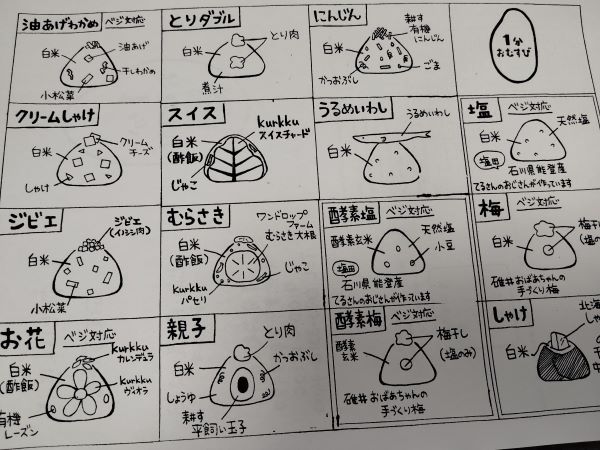 油あげわかめ ベジ対応
油あげ
白米
干しわかめ
小松菜
とりダブル
とり肉
白米
煮汁
にんじん
耕す
有機
にんじん
白米
かつおぶし
ごま
1分
おむすび
クリームしゃけ
白米
クリーム
チーズ
しゃけ
スイス
kurkku
スイスチャード
白米
(酢飯)
じゃこ
うるめいわし
うるめいわし
白米
塩 ベジ対応
天然塩
白米
塩田
石川県能登産
てるさんのおじさんが作っています
ジビエ
ジビエ
(イノシシ肉)
白米
小松菜
むらさき
ワンドロップ
ファーム
むらさき大根
白米
(酢飯)
じゃこ
kurkku
パセリ
酵素塩 ベジ対応
酵素玄米
天然塩
小豆
塩田
石川県能登産
てるさんのおじさんが作っています
梅 ベジ対応
梅干し
(塩の
白米
碓井おばあちゃんの
手づくり梅
お花 ベジ対応
kurkku
カレンデュラ
白米
(酢飯)
kurkku
ヴィオラ
有機
レーズン
親子
とり肉
白米
かつおぶし
しょうゆ
耕す
平飼い玉子
酵素梅 ベジ対応
酵素
玄米
梅干し
(塩のみ)
碓井おばあちゃんの
手づくり梅
しゃけ
北海
白米